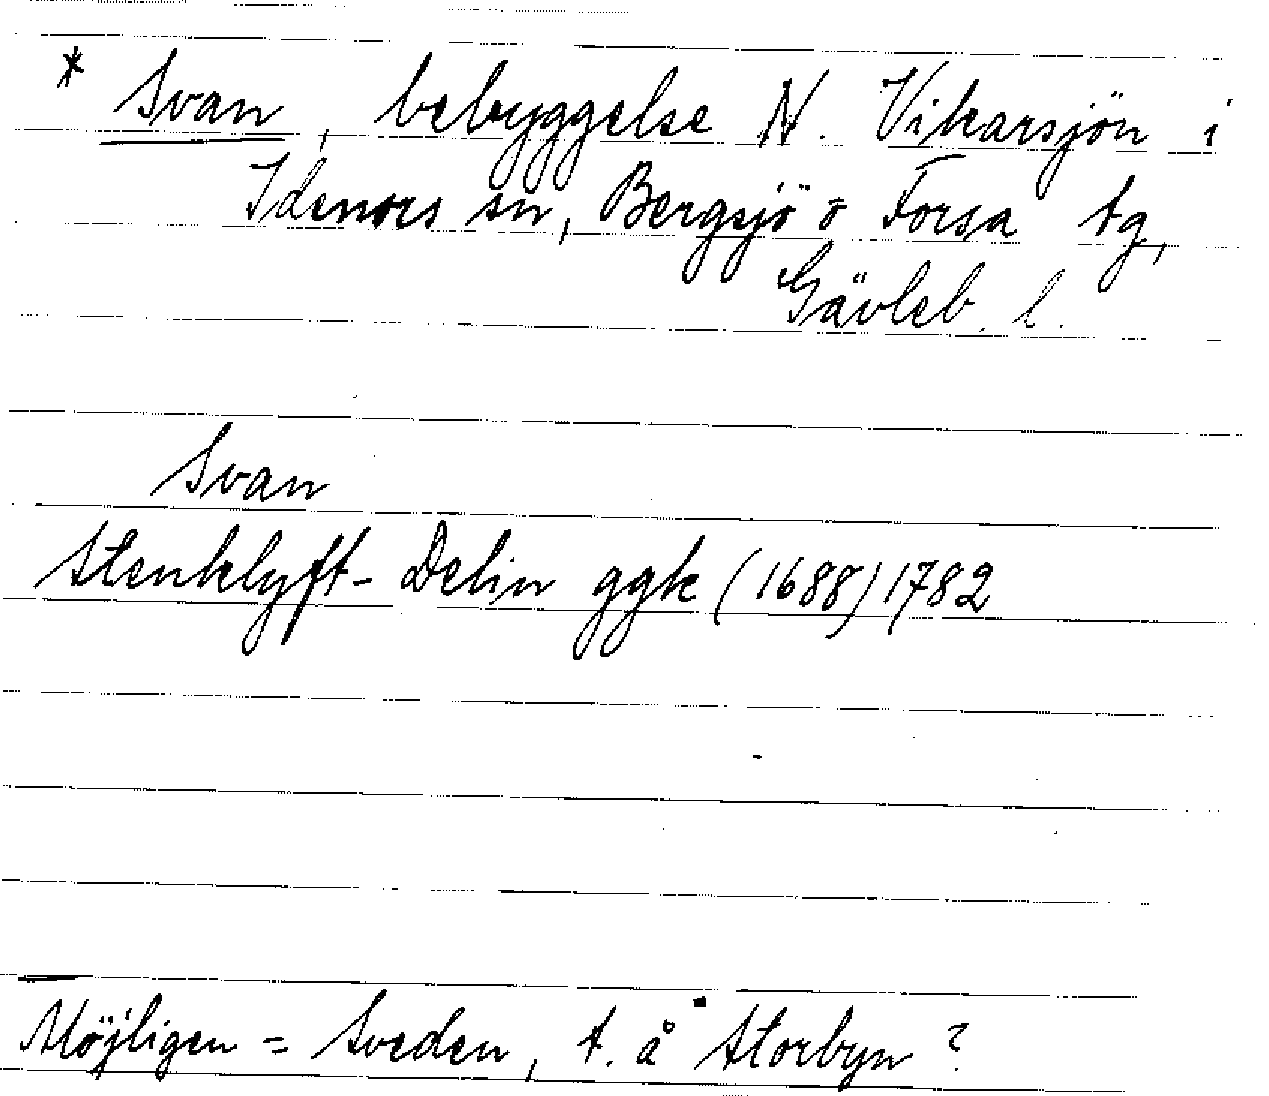 * Svan, bebyggelse N. Vikarsjön i
Idenors sn, Bergsjö o Forsa tg,
Gävleb. l.
Svan
Stenklyft- Delin ggk (1688) 1782
Möjligen = Sveden, t. å Storbyn ?